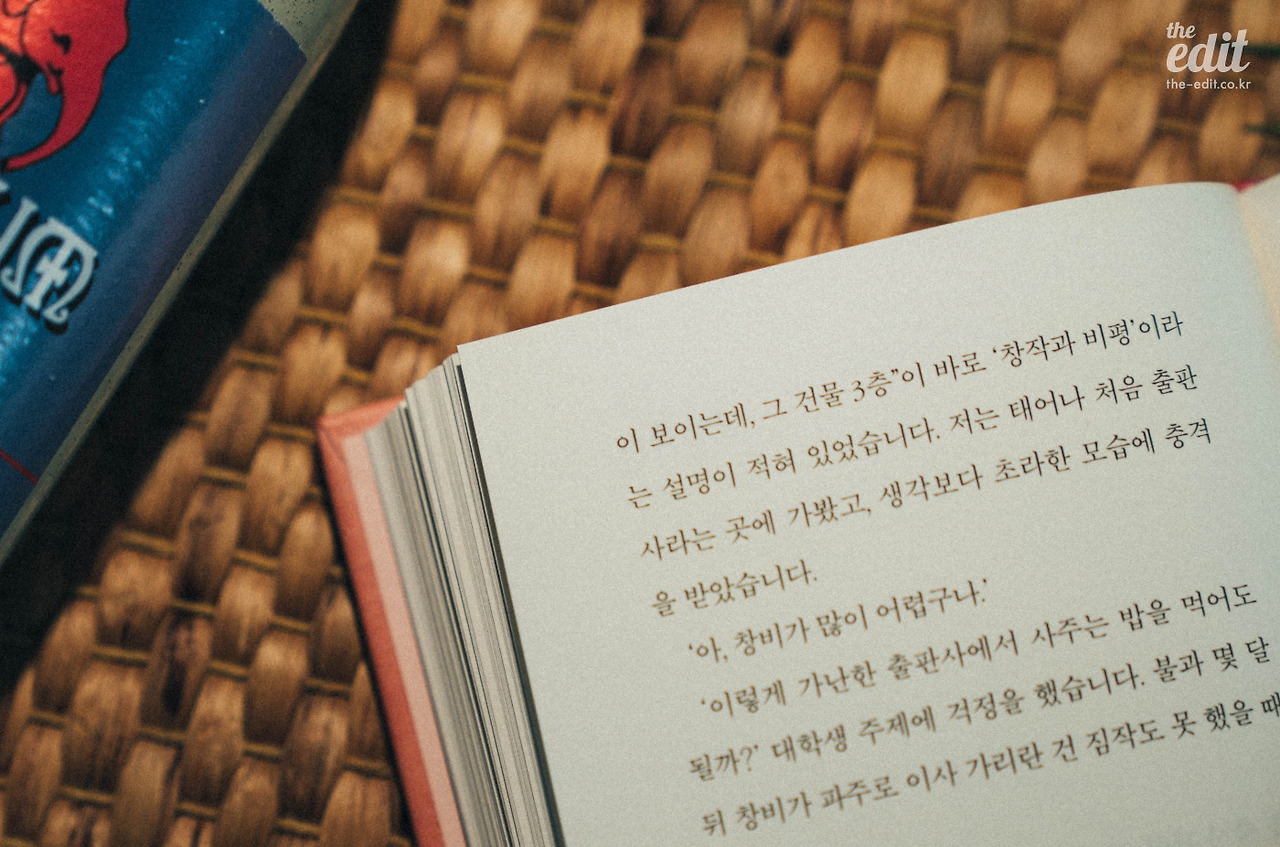 the
edit
the-edit.co.kr
이 보이는데, 그 건물 3층”이 바로 ‘창작과 비평’이라
는 설명이 적혀 있었습니다. 저는 태어나 처음 출판
사라는 곳에 가봤고, 생각보다 초라한 모습에 충격
을 받았습니다.
‘아, 창비가 많이 어렵구나.’
‘이렇게 가난한 출판사에서 사주는 밥을 먹어도
될까?’ 대학생 주제에 걱정을 했습니다. 불과 몇 달
뒤 창비가 파주로 이사 가리란 건 짐작도 못 했을 때